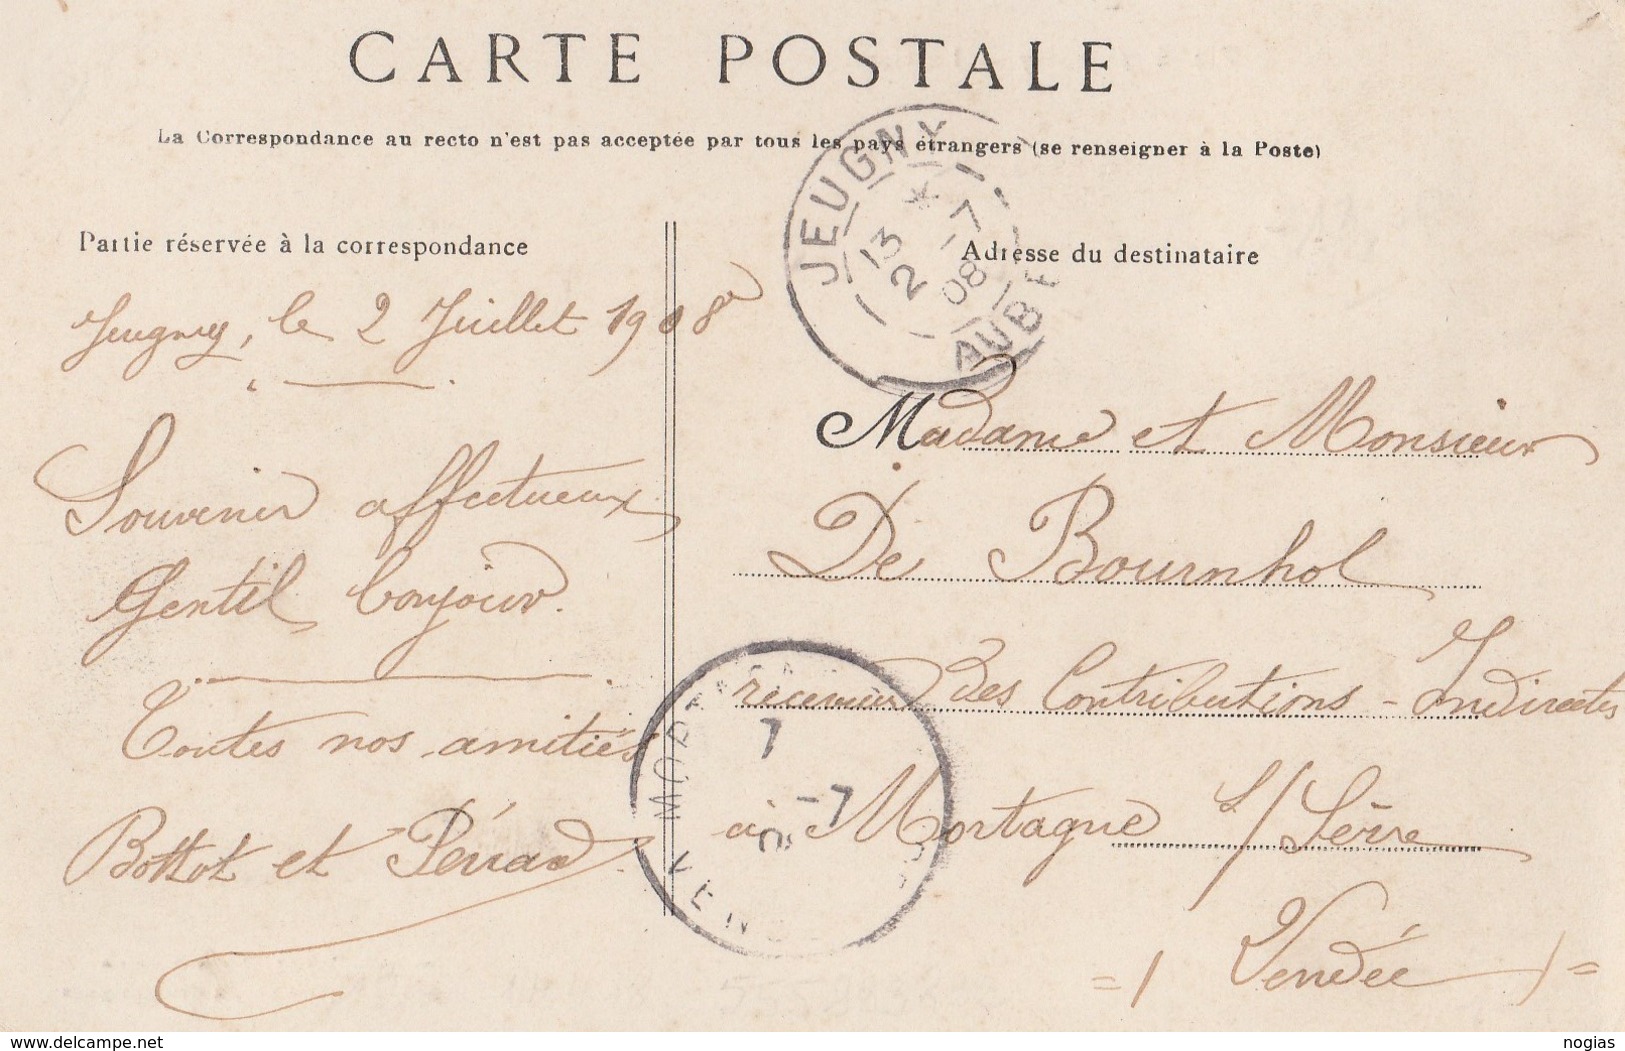 CARTE POSTALE
La Correspondance au recto n'est pas acceptée par tous les pays étrangers (se renseigner à la Poste)
Partie réservée à la correspondance
Jeugny, le 2 Juillet 1908
Souvenir affectueux
Gentil bonjour.
Toutes nos amitiés
Bottot et Pérard
JEUGNY
13 *
2 -7
08
AUBE
Adresse du destinataire
Madame et Monsieur
De Bournhol
receveur des Contributions-Indirectes
à Mortagne s/ Sèvre
= / Vendée / =
7
-7
VEN
www.delcampe.net
nogias